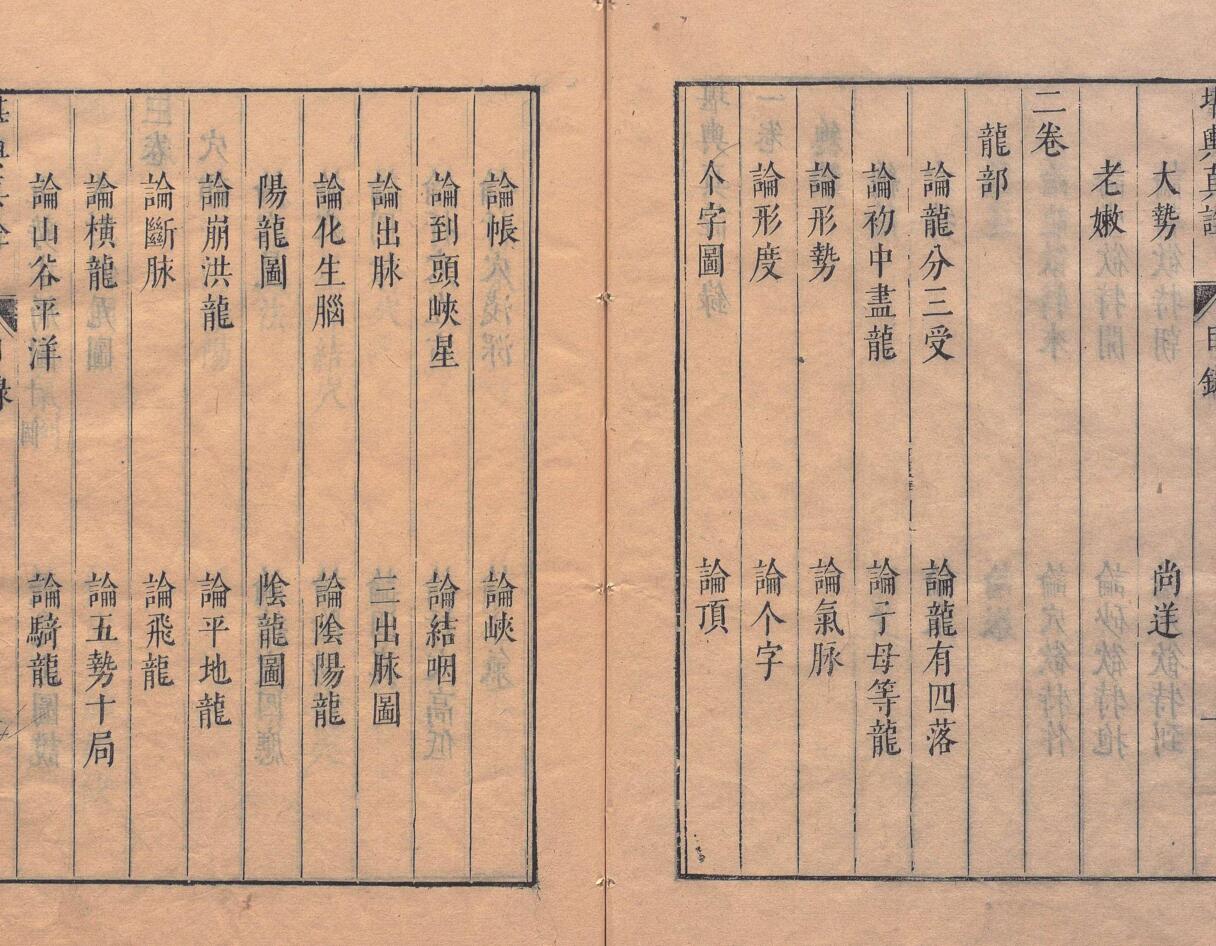 堪輿真詮 目錄 一
大勢 尚
老嫩
二卷
龍部
論龍分三受 論龍有四落
論初中盡龍 論子母等龍
論形勢 論氣脉
論形度 論个字
个字圖 論頂
論帳 論峽
論到頭峽星 論結咽
論出脉 三出脉圖
論化生腦 論陰陽龍
陽龍圖 陰龍圖
論崩洪龍 論平地龍
論斷脉 論飛龍
論橫龍 論五勢十局
論山谷平洋 論騎龍
堪輿真詮 目錄